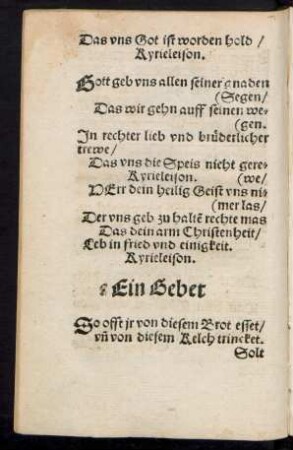 Das vns Got ist worden hold /
Kyrieleison.
Gott geb vns allen seiner gnaden
(Segen/
Das wir gehn auff seinen we-
(gen.
In rechter lieb vnd brůderlicher
trewe/
Das vns die Speis nicht gere-
Kyrieleison. (we/
HErr dein heilig Geist vns ni-
(mer las/
Der vns geb zu haltẽ rechte mas
Das dein arm Christenheit/
Leb in fried vnd einigkeit.
Kyrieleison.
Ein Gebet
So offt jr von diesem Brot esset/
vñ von diesem Kelch trincket.
Solt